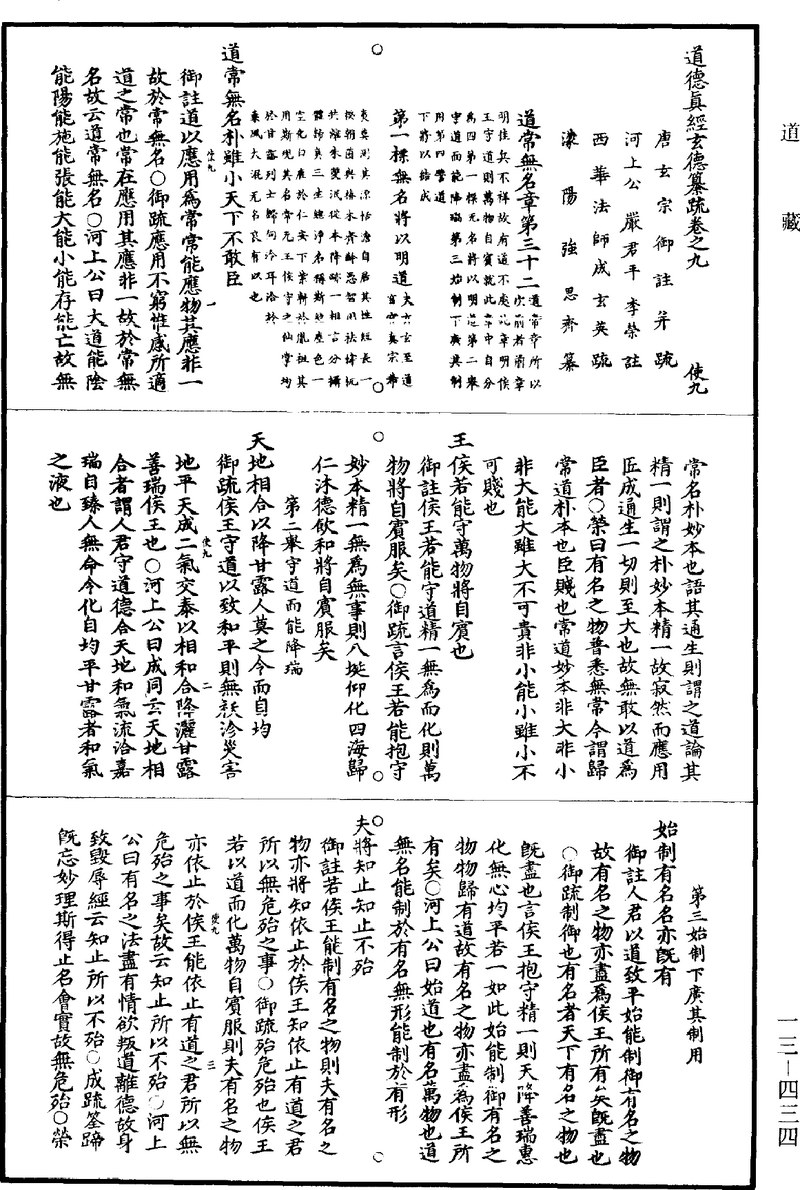 道藏
道德真經玄德纂疏卷之九
使九
唐玄宗御註并疏
河上公嚴君平李榮註
西華法師成玄英疏
濛陽強思齊纂
道常無名章第三十二
道常章所以次前者前章
明佳兵不祥故有道不處此章明侯
王守道則萬物自賓就此章中自分
為四第一標无名將以明道第二舉
守道而能降瑞第三始制下廣其制
用第四譬道
下將以結成
第一標無名將以明道
道常無名朴雖小天下不敢臣
御註道以應用為常常能應物其應非一
故於常無名○御疏應用不窮惟感所適
道之常也常在應用其應非一故於常無
名故云道常無名○河上公曰大道能陰
能陽能施能張能大能小能存能亡故無
常名朴妙本也語其通生則謂之道論其
精一則謂之朴妙本精一故寂然而應用
匠成通生一切則至大也故無敢以道為
臣者○榮曰有名之物普悉無常今謂歸
常道朴本也臣賤也常道妙本非大非小
非大能大雖大不可貴非小能小雖小不
可賤也
王侯若能守萬物將自賓也
御註侯王若能守道精一無為而化則萬
物將自賓服矣○御疏言侯王若能抱守
妙本精一無為無事則八埏仰化四海歸
仁沐德飲和將自賓服矣
第二舉守道而能降瑞
天地相合以降甘露人莫之令而自均
御疏侯王守道以致和平則無祅沴災害
地平天成二氣交泰以相和合降灑甘露
善瑞侯王也○河上公曰成同云天地相
合者謂人君守道德合天地和氣流洽嘉
瑞自臻人無命令化自均平甘露者和氣
之液也
第三始制下廣其制用
始制有名名亦既有
御註人君以道致平始能制御有名之物
故有名之物亦盡為侯王所有矣既盡也
○御疏制御也有名者天下有名之物也
既盡也言侯王抱守精一則天降善瑞惠
化無心均平若一如此始能制御有名之
物物歸有道故有名之物亦盡為侯王所
有矣○河上公曰始道也有名萬物也道
無名能制於有名無形能制於有形
夫將知止知止不殆
御註若侯王能制有名之物則夫有名之
物亦將知依止於侯王知依止有道之君
所以無危殆之事○御疏殆危殆也侯王
若以道而化萬物自賓服則夫有名之物
亦依止於侯王能依止有道之君所以無
危殆之事矣故云知止所以不殆○河上
公曰有名之法盡有情欲叛道離德故身
致毀辱經云知止所以不殆○成疏筌蹄
既忘妙理斯得止名會實故無危殆○榮
一三一四三四